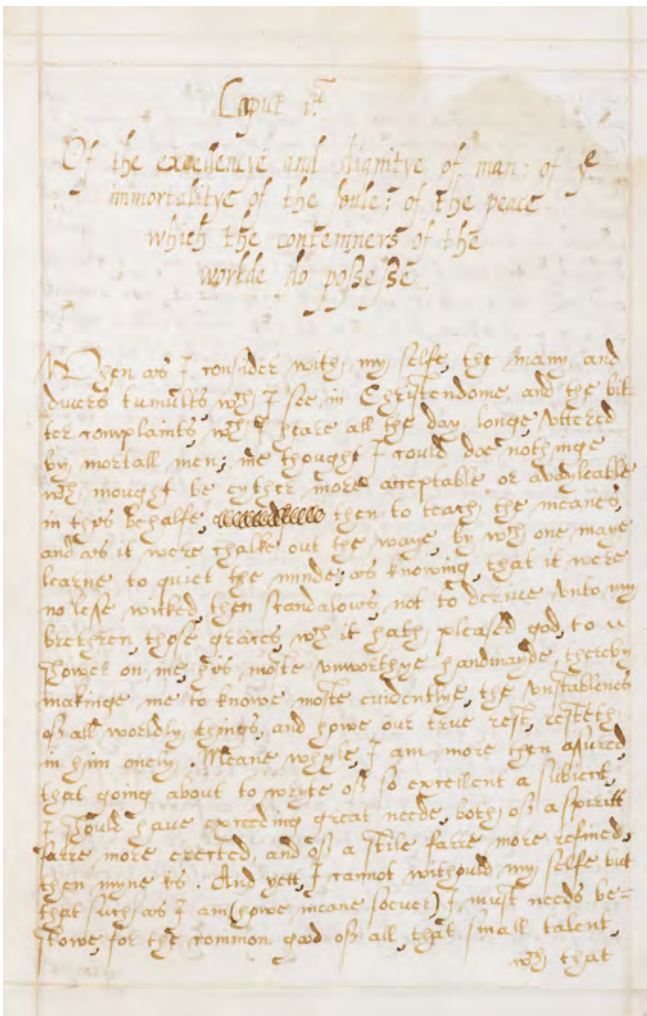 Caput i.um
Of the excellencye and dignitye of man: of ye
immortalitye of the soule: of the peace
which the contemners of the
worlde do possesse.
When as I consider with my selfe, the many, and
divers tumults, wch I see, in Christendome, and the bit-
ter complaints, wch I heare all the day longe, uttered
by mortall men; me thought I could doe nothinge
wch mought be eyther more acceptable or avayleable
in thys behalfe, then to teach the meanes,
and as it were chalke out the waye, by wch one maye
learne to quiet the minde; as knowing, that it were
no lesse wicked, then scandalows, not to derive unto my
brethren, those graces, wch it hath pleased god, to
shower on me, hys moste unworthye handmayde, thereby
makinge me to knowe moste evidentlye, the unstablenes
of all worldly things, and howe our true rest, resteth,
in him onely. Meane whyle, I am more then asured,
that going about to wryte of so excellent a subiect,
I should have exceeding great neede, both of a spiritt
farre more erected, and of a stile farre more refined,
then myne is. And yett, I cannot withould my selfe but
that such as I am (howe meane soever) I must needs be=
stowe, for the common good of all, that small talent,
wch that